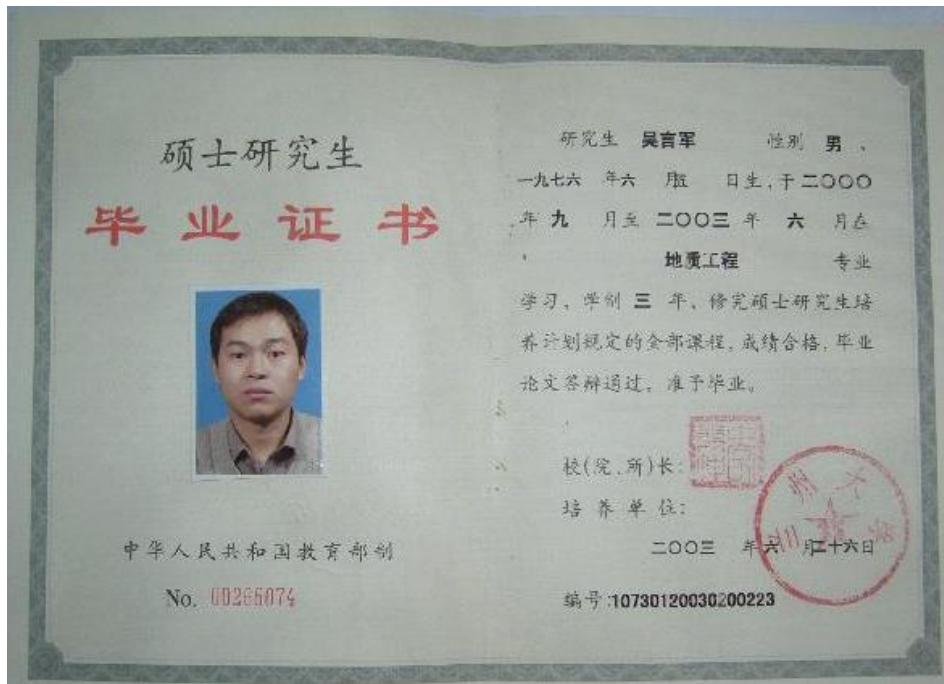 硕士研究生
毕业证书
中华人民共和国教育部制
No. 00266074
研究生 吴言军 性别 男、
一九七六 年六 月五 日生,于二〇〇〇
年 九 月至 二〇〇三 年 六 月在
地质工程 专业
学习,学制 三 年、修完硕士研究生培
养计划规定的全部课程,成绩合格,毕业
论文答辩通过。准予毕业。
校(院、所)长:
培养单位:
兰州大学
二〇〇三 年六 月二十六日
编号:10730120030200223